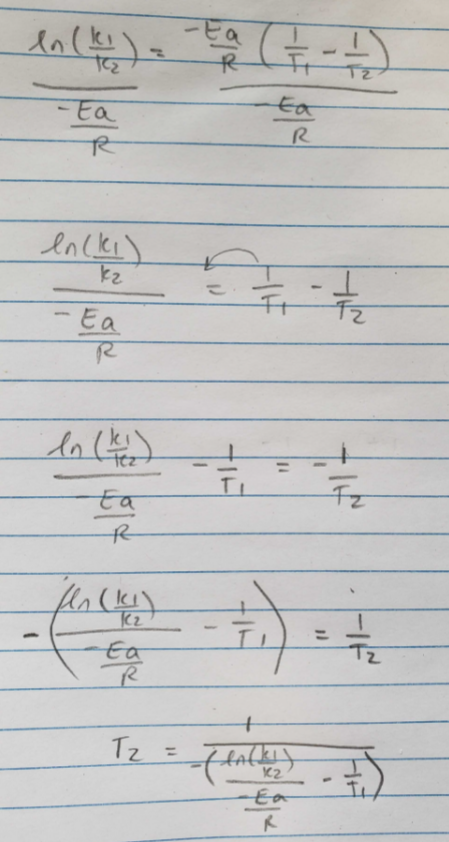 ln(k1/k2) / (-Ea/R) = -Ea/R (1/T1 - 1/T2) / (-Ea/R)
ln(k1/k2) / (-Ea/R) = 1/T1 - 1/T2
ln(k1/k2) / (-Ea/R) - 1/T1 = - 1/T2
-(ln(k1/k2) / (-Ea/R) - 1/T1) = 1/T2
T2 = 1 / -(ln(k1/k2) / (-Ea/R) - 1/T1)